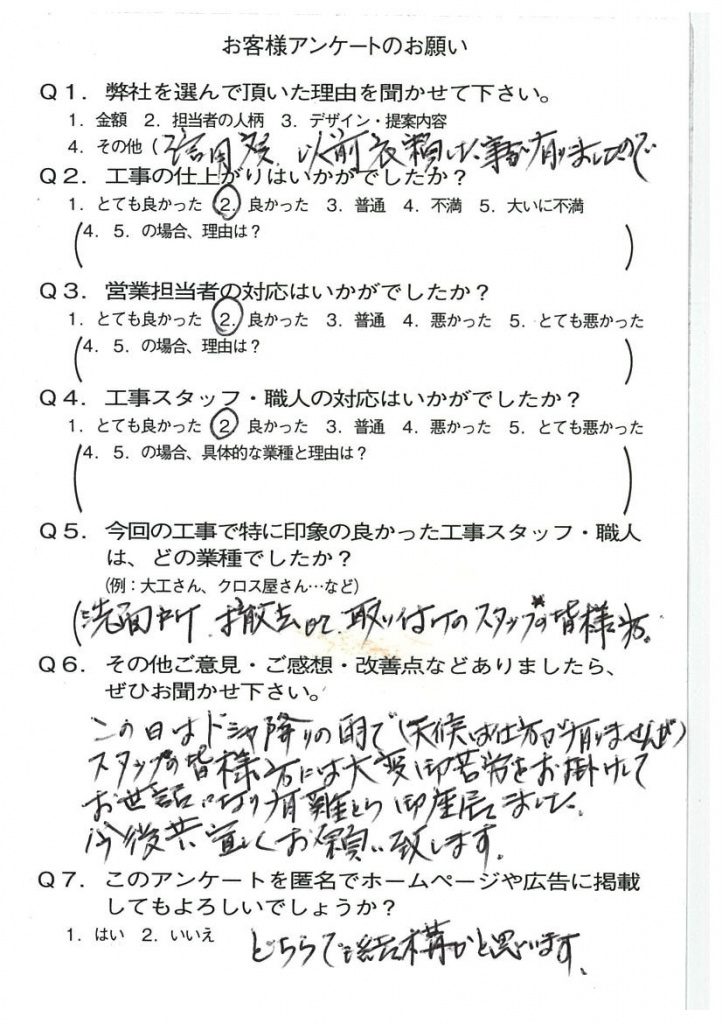 お客様アンケートのお願い
Q1. 弊社を選んで頂いた理由を聞かせて下さい。
1. 金額 2. 担当者の人柄 3. デザイン・提案内容
4. その他 ( 信用度、以前依頼した事が有りましたので
Q2. 工事の仕上がりはいかがでしたか?
1. とても良かった 2. 良かった 3. 普通 4. 不満 5. 大いに不満
(4. 5. の場合、理由は? )
Q3. 営業担当者の対応はいかがでしたか?
1. とても良かった 2. 良かった 3. 普通 4. 悪かった 5. とても悪かった
(4. 5. の場合、理由は? )
Q4. 工事スタッフ・職人の対応はいかがでしたか?
1. とても良かった 2. 良かった 3. 普通 4. 悪かった 5. とても悪かった
(4. 5. の場合、具体的な業種と理由は? )
Q5. 今回の工事で特に印象の良かった工事スタッフ・職人
は、どの業種でしたか?
(例:大工さん、クロス屋さん…など)
(洗面所、撤去 取り付けのスタッフの皆様方。
Q6. その他ご意見・ご感想・改善点などありましたら、
ぜひお聞かせ下さい。
この日はドシャ降りの雨で(天候は仕方が有りませんが)
スタッフの皆様方には大変御苦労をお掛けして
お世話になり有難とう御座居ました。
今後共宜しくお願い致します。
Q7. このアンケートを匿名でホームページや広告に掲載
してもよろしいでしょうか?
1. はい 2. いいえ どちらで結構かと思います。